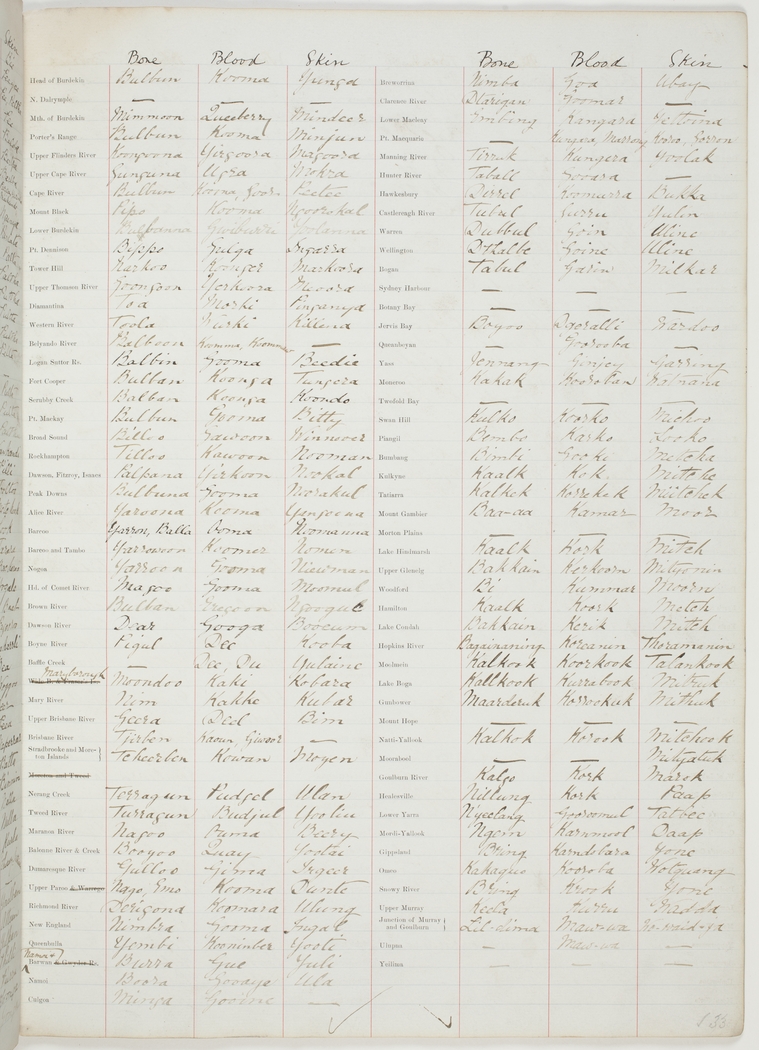 Bone Blood Skin
Head of Burdekin Bulbun Kooma Yunga
N. Dalrymple —
Mth. of Burdekin Mimmoon Queeberry Mindeer
Porter's Range Bulbun Kooma Minjun
Upper Flinders River Koongoona Yirgoora Magoora
Upper Cape River Junguna Ugra Mokra
Cape River Bulbun Kooma, Peetee
Mount Black Pipo Kooma Ngoorokal
Lower Burdekin
Pt. Denison Bippo Julga Ingarra
Tower Hill Narkoo Koonger Markoora
Upper Thomson River Yoongoon Yerkoora Moora
Diamantina Toa Morki Pinganya
Western River Toola Kurki Kittina
Belyando River Balboon Komma, —
Logan Suttor Rs. Balbin Gooma Beedie
Fort Cooper Bulban Koonga Tungera
Scrubby Creek Balban Keonga Koondo
Pt. Mackay Bulbun Gooma Bitty
Broad Sound Billoo Gawoon Winnooer
Rockhampton Tilloo Kawoon Nooman
Dawson, Fitzroy, Isaacs Palpana Yirkoon Nookal
Peak Downs Bulbuna Gooma Noorakul
Alice River Yaroona Kooma
Barcoo Yarron, Balla Ooma Noomanna
Barcoo and Tambo Yarrowoon Koomer Nomun
Nogoa Yarrcoo Gooma Niewman
Hd. of Comet River Magoo Gooma Moomul
Brown River Bulban Eregoon
Dawson River Dear Googa Booeum
Boyne River Pigul Dee Kooba
Baffle Creek — Dee, Du Gulaine
Maryborough
Moondoo Kaki Kobara
Mary River Nim Kakke Kubar
Upper Brisbane River Geera Deol Bim
Brisbane River Tirben Kaoun, Giwoor —
Stradbroke and Moreton Islands Tcheerben Kowan Moyen
Moreton and Tweed
Nerang Creek Terragun Pudgel Ulan
Tweed River Turragun Budjul Yoolin
Maranoa River Nagoo Ouma Beery
Balonne River & Creek Booyoo Quay Yootai
Dumaresque River Gulloo Girna Irgeer
Upper Paroo & Warrego Nago, Emo Kooma Dunte
Richmond River Derigona Koomara Ubung
New England Nimbra Gooma Ingar
Queenbulla Yembi Kooninber Yoote
Namoi &
Barwan & Gwyder Rs. Burra Gue Yuli
Namoi Boora Govaye Ula
Culgoa Minga Govine —
Bone Blood Skin
Brewarrina Nimba Goa Ubay
Clarence River Dtarigan Goomar —
Lower Macleay Imbing Kangara Yettina
Pt. Macquarie —
Manning River Tirruk Kungera Yoolak
Hunter River Taball Gooara —
Hawkesbury Dirrel Koomurra Bukka
Castlereagh River Tubul Gurru Yulin
Warren Dubbul Goin Uline
Wellington Dthalbe Goine Uline
Bogan Tabul Garin Milkar
Sydney Harbour — — —
Botany Bay —
Jervis Bay Boyoo Dgoralli Gardoo
Queanbeyan Goorooba
Yass Jennang Ginjoy Garring
Moneroo Kakak Kooroban Katnana
Twofold Bay
Swan Hill Kulko Koorko Michoo
Piangil Bembo Karko Looko
Bumbang Bimbi Gooki Metche
Kulkyne Kaalk Kok. Mitteke
Tatiarra Kalkek Korrekek Miitchek
Mount Gambier Baa-aa Kamar Moor
Morton Plains
Lake Hindmarsh Kaalk Kork Mitch
Upper Glenelg Bakkain Kerkoorn Mityonin
Woodford Bi Kummar Moorn
Hamilton Kaalk Koork Metch
Lake Condah Bakkain Kerik Mitch
Hopkins River Bagainaning Korcanin Thoramanin
Mortlake Kalkook Koorkook Talankook
Lake Boga Kallkook Kurrabook Mithuk
Gunbower Maarderuk Korrookuk Mithuk
Mount Hope
Natti-Yallook Kalkok Korook Mitchook
Moorabool Mityatuk
Goulburn River Kalgo Kork Marok
Healesville Nillung Kork Paap
Lower Yarra Nyeelang Gooroomul Talbec
Mordi-Yallook Ngem Karnmool Daap
Gippsland Bring Karndobara Yone
Omeo Kakaguo Kooroba Wotguang
Snowy River Bring Krook Yone
Upper Murray Keela Kurru Madda
Junction of Murray and Goulburn Lil-dima Maw-wa No-waid-ya
Ulupna — Maw-wa —
Yeilima — — —